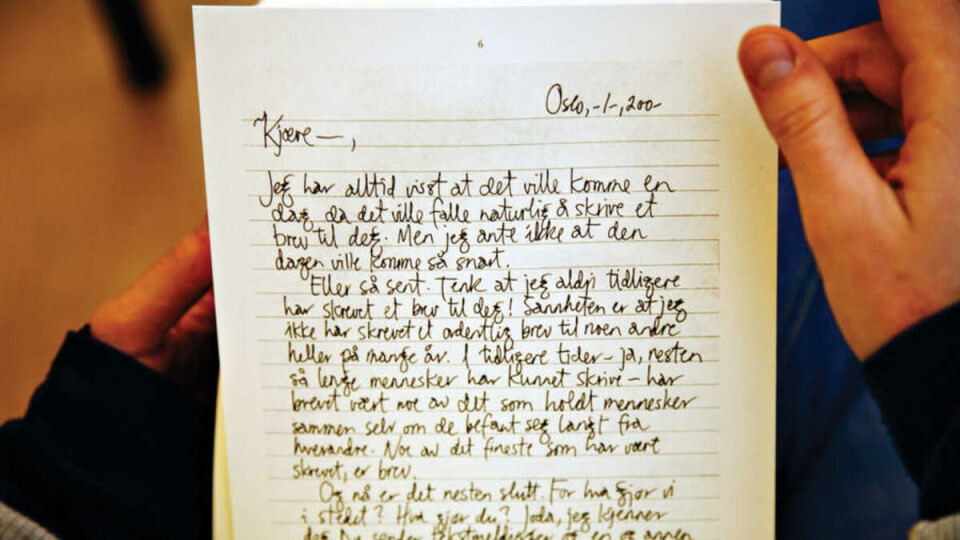 6
Oslo, -/-, 200-
Kjære —,
Jeg har alltid visst at det ville komme en
dag da det ville falle naturlig å skrive et
brev til deg. Men jeg ante ikke at den
dagen ville komme så snart.
Eller så sent. Tenk at jeg aldri tidligere
har skrevet et brev til deg! Sannheten er at jeg
ikke har skrevet et ordentlig brev til noen andre
heller på mange år. I tidligere tider – ja, nesten
så lenge mennesker har kunnet skrive – har
brevet vært noe av det som holdt mennesker
sammen selv om de befant seg langt fra
hverandre. Noe av det fineste som har vært
skrevet, er brev.
Og nå er det nesten slutt. For hva gjør vi
i stedet? Hva gjør du? Joda, jeg kjenner
deg. Du sender tekstmeldinger og en og annen